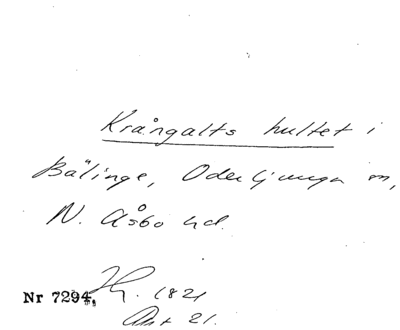 Krångalts hultet i
Bälinge, Oderljunga sn,
N. Åsbo hd.
Nr 7294. 1821
Akt 21.